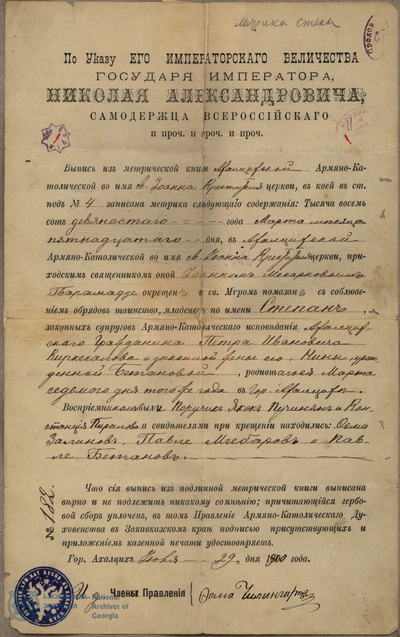 метрика степ
По Указу ЕГО ИМПЕРАТОРСКАГО ВЕЛИЧЕСТВА
ГОСУДАРЯ ИМПЕРАТОРА,
НИКОЛАЯ АЛЕКСАНДРОВИЧА,
САМОДЕРЖЦА ВСЕРОССІЙСКАГО
и проч. и проч. и проч.
Выпись изъ метрической книги Ахалцихской Армяно-Ка-
толической во имя св. Іоанна Крестителя церкви, въ коей въ ст.
подъ № 4 записана метрика слѣдующаго содержанія: Тысяча восемь
сотъ девяностаго года Марта мѣсяца
пятнадцатаго дня, въ Ахалцихской
Армяно-Католической во имя св. Іоанна церкви, при-
ходскимъ священникомъ оной
окрещенъ и св. Мѵромъ помазанъ съ соблюде-
ніемъ обрядовъ таинства, младенецъ по имени Степанъ,
законныхъ супруговъ Армяно-Католическаго исповѣданія Ахалцих-
скаго Гражданина Петра Ивановича
и законной жены его, Нины, урож-
денной Бетановой, родившагося Марта
седьмого дня того же года въ гор. Ахалцихѣ.
Воспріемникомъ были Поручикъ Якех и Кон-
станція а свидѣтелями при крещеніи находились: Ѳома
Залиновъ, Павле Мчебаровъ и Пав-
ле Бетановъ.
Что сія выпись изъ подлинной метрической книги выписана
вѣрно и не подлежитъ никакому сомнѣнію; причитающійся гербо-
вой сборъ уплоченъ, въ томъ Правленіе Армяно-Католическаго Ду-
ховенства въ Закавказскомъ краѣ подписью присутствующихъ и
приложеніемъ казенной печати удостовѣряетъ.
№ 182.
Гор. Ахалцихъ 29 дня 1900 года.
Члены Правленія
Ѳома
National
Archives of
Georgia